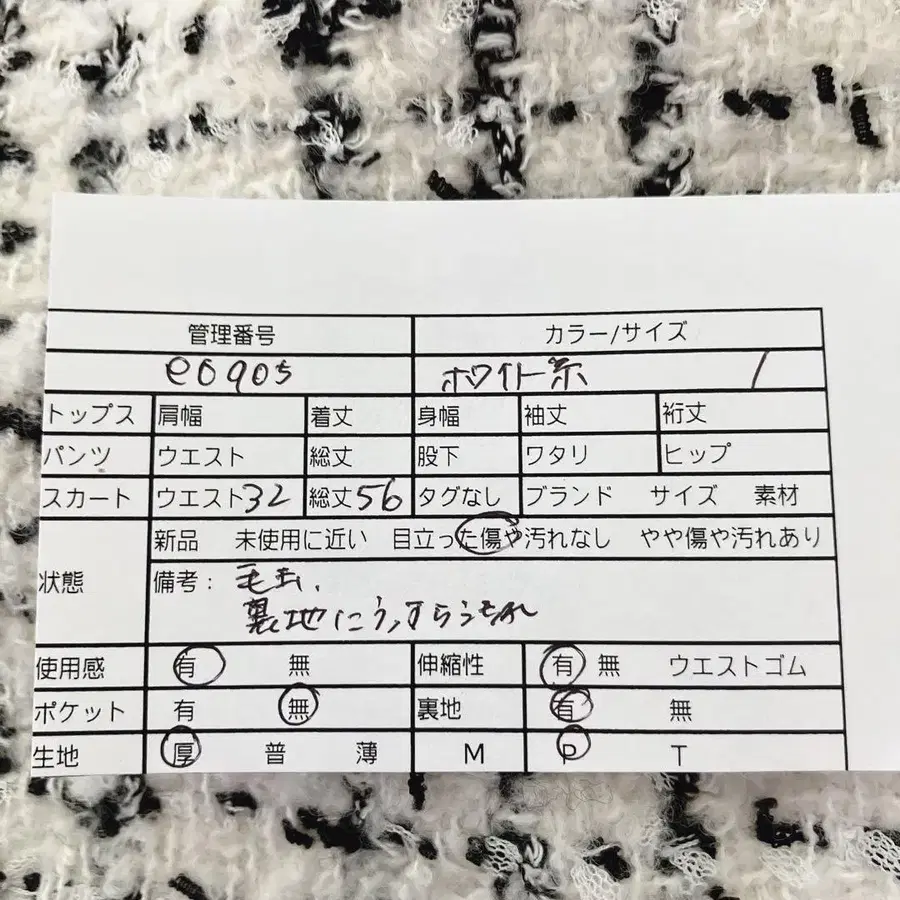 管理番号 カラー/サイズ
e0905 ホワイト系 1
トップス 肩幅 着丈 身幅 袖丈 裄丈
パンツ ウエスト 総丈 股下 ワタリ ヒップ
スカート ウエスト32 総丈56 タグなし ブランド サイズ 素材
状態 新品 未使用に近い 目立った傷や汚れなし やや傷や汚れあり
備考：毛玉、
裏地にうっすら
使用感 有 無 伸縮性 有 無 ウエストゴム
ポケット 有 無 裏地 有 無
生地 厚 普 薄 M P T